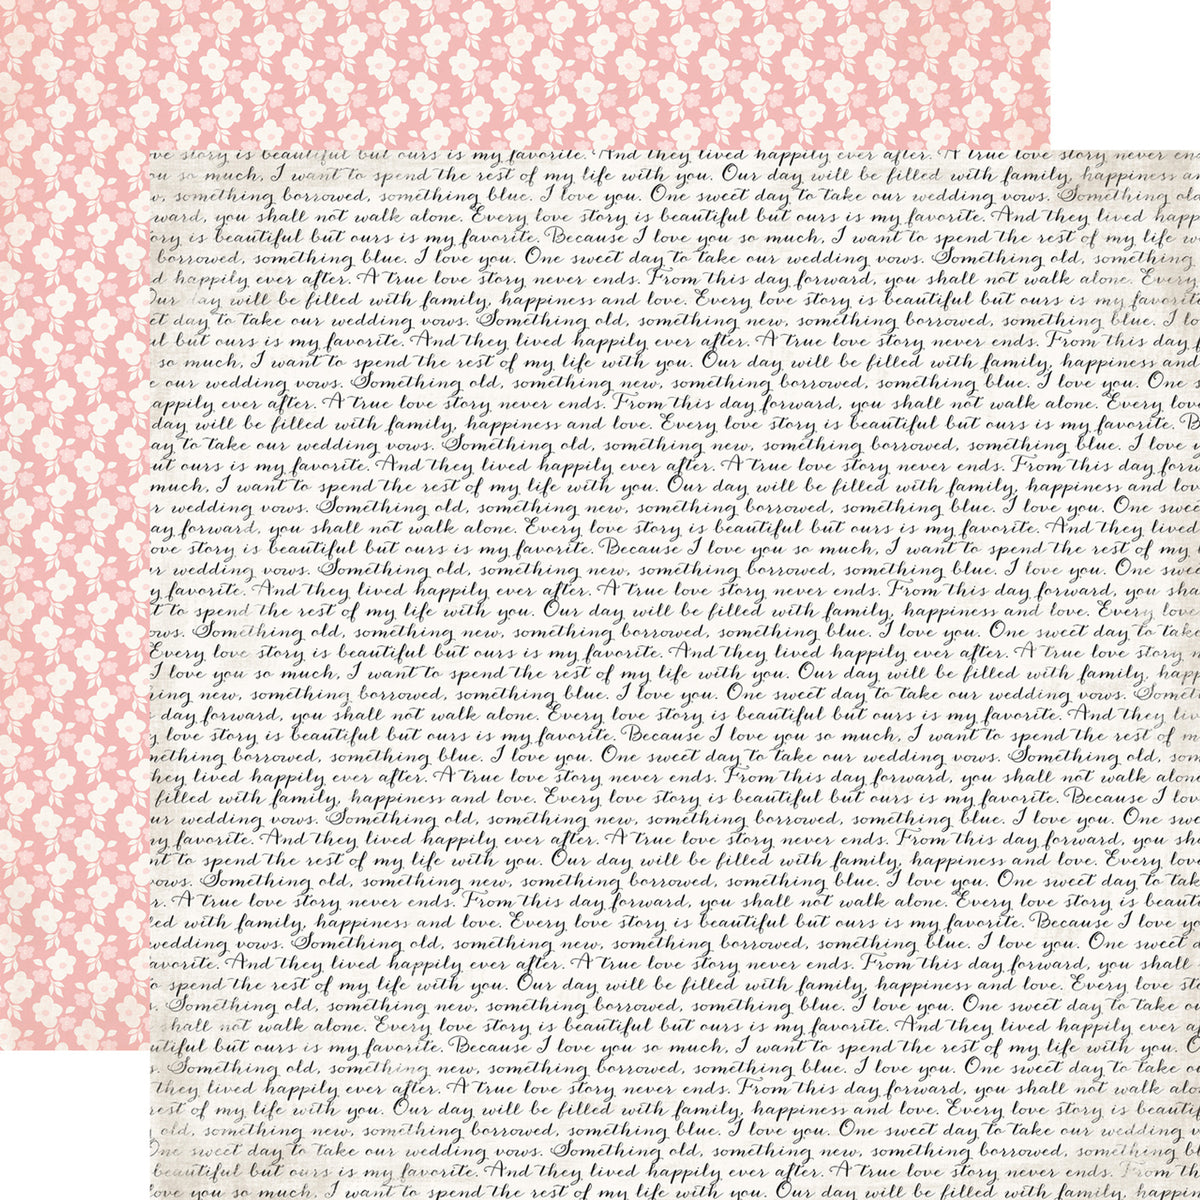 ve story is beautiful but ours is my favorite. And they lived happily ever after. A true love story never en
ou so much, I want to spend the rest of my life with you. Our day will be filled with family, happiness an
w, something borrowed, something blue. I love you. One sweet day to take our wedding vows. Something old
ward, you shall not walk alone. Every love story is beautiful but ours is my favorite. And they lived happ
ory is beautiful but ours is my favorite. Because I love you so much, I want to spend the rest of my life w
borrowed, something blue. I love you. One sweet day to take our wedding vows. Something old, something
d happily ever after. A true love story never ends. From this day forward, you shall not walk alone. Every
Our day will be filled with family, happiness and love. Every love story is beautiful but ours is my favorit
et day to take our wedding vows. Something old, something new, something borrowed, something blue. I lo
ul but ours is my favorite. And they lived happily ever after. A true love story never ends. From this day f
so much, I want to spend the rest of my life with you. Our day will be filled with family, happiness and
e our wedding vows. Something old, something new, something borrowed, something blue. I love you. One s
appily ever after. A true love story never ends. From this day forward, you shall not walk alone. Every lov
day will be filled with family, happiness and love. Every love story is beautiful but ours is my favorite. B
ay to take our wedding vows. Something old, something new, something borrowed, something blue. I love y
ut ours is my favorite. And they lived happily ever after. A true love story never ends. From this day forw
much, I want to spend the rest of my life with you. Our day will be filled with family, happiness and lov
r wedding vows. Something old, something new, something borrowed, something blue. I love you. One swee
ay forward, you shall not walk alone. Every love story is beautiful but ours is my favorite. And they lived
ove story is beautiful but ours is my favorite. Because I love you so much, I want to spend the rest of my
ur wedding vows. Something old, something new, something borrowed, something blue. I love you. One swe
y favorite. And they lived happily ever after. A true love story never ends. From this day forward, you sha
t to spend the rest of my life with you. Our day will be filled with family, happiness and love. Every love
ows. Something old, something new, something borrowed, something blue. I love you. One sweet day to tak
Every love story is beautiful but ours is my favorite. And they lived happily ever after. A true love story n
I love you so much, I want to spend the rest of my life with you. Our day will be filled with family, happ
hing new, something borrowed, something blue. I love you. One sweet day to take our wedding vows. Someth
day forward, you shall not walk alone. Every love story is beautiful but ours is my favorite. And they liv
y love story is beautiful but ours is my favorite. Because I love you so much, I want to spend the rest of m
mething borrowed, something blue. I love you. One sweet day to take our wedding vows. Something old, som
hey lived happily ever after. A true love story never ends. From this day forward, you shall not walk alon
filled with family, happiness and love. Every love story is beautiful but ours is my favorite. Because I lov
ur wedding vows. Something old, something new, something borrowed, something blue. I love you. One swe
ny favorite. And they lived happily ever after. A true love story never ends. From this day forward, you sh
nt to spend the rest of my life with you. Our day will be filled with family, happiness and love. Every lov
vows. Something old, something new, something borrowed, something blue. I love you. One sweet day to tak
r. A true love story never ends. From this day forward, you shall not walk alone. Every love story is beauti
led with family, happiness and love. Every love story is beautiful but ours is my favorite. Because I love y
wedding vows. Something old, something new, something borrowed, something blue. I love you. One sweet d
avorite. And they lived happily ever after. A true love story never ends. From this day forward, you shall
o spend the rest of my life with you. Our day will be filled with family, happiness and love. Every love sto
s. Something old, something new, something borrowed, something blue. I love you. One sweet day to take o
shall not walk alone. Every love story is beautiful but ours is my favorite. And they lived happily ever a
utiful but ours is my favorite. Because I love you so much, I want to spend the rest of my life with you. O
s. Something old, something new, something borrowed, something blue. I love you. One sweet day to take o
they lived happily ever after. A true love story never ends. From this day forward, you shall not walk alo
rest of my life with you. Our day will be filled with family, happiness and love. Every love story is beautif
old, something new, something borrowed, something blue. I love you. One sweet day to take our wedding v
One sweet day to take our wedding vows. Something old, something new, something borrowed, something b
beautiful but ours is my favorite. And they lived happily ever after. A true love story never ends. From th
love you so much, I want to spend the rest of my life with you. Our day will be filled with family, happin